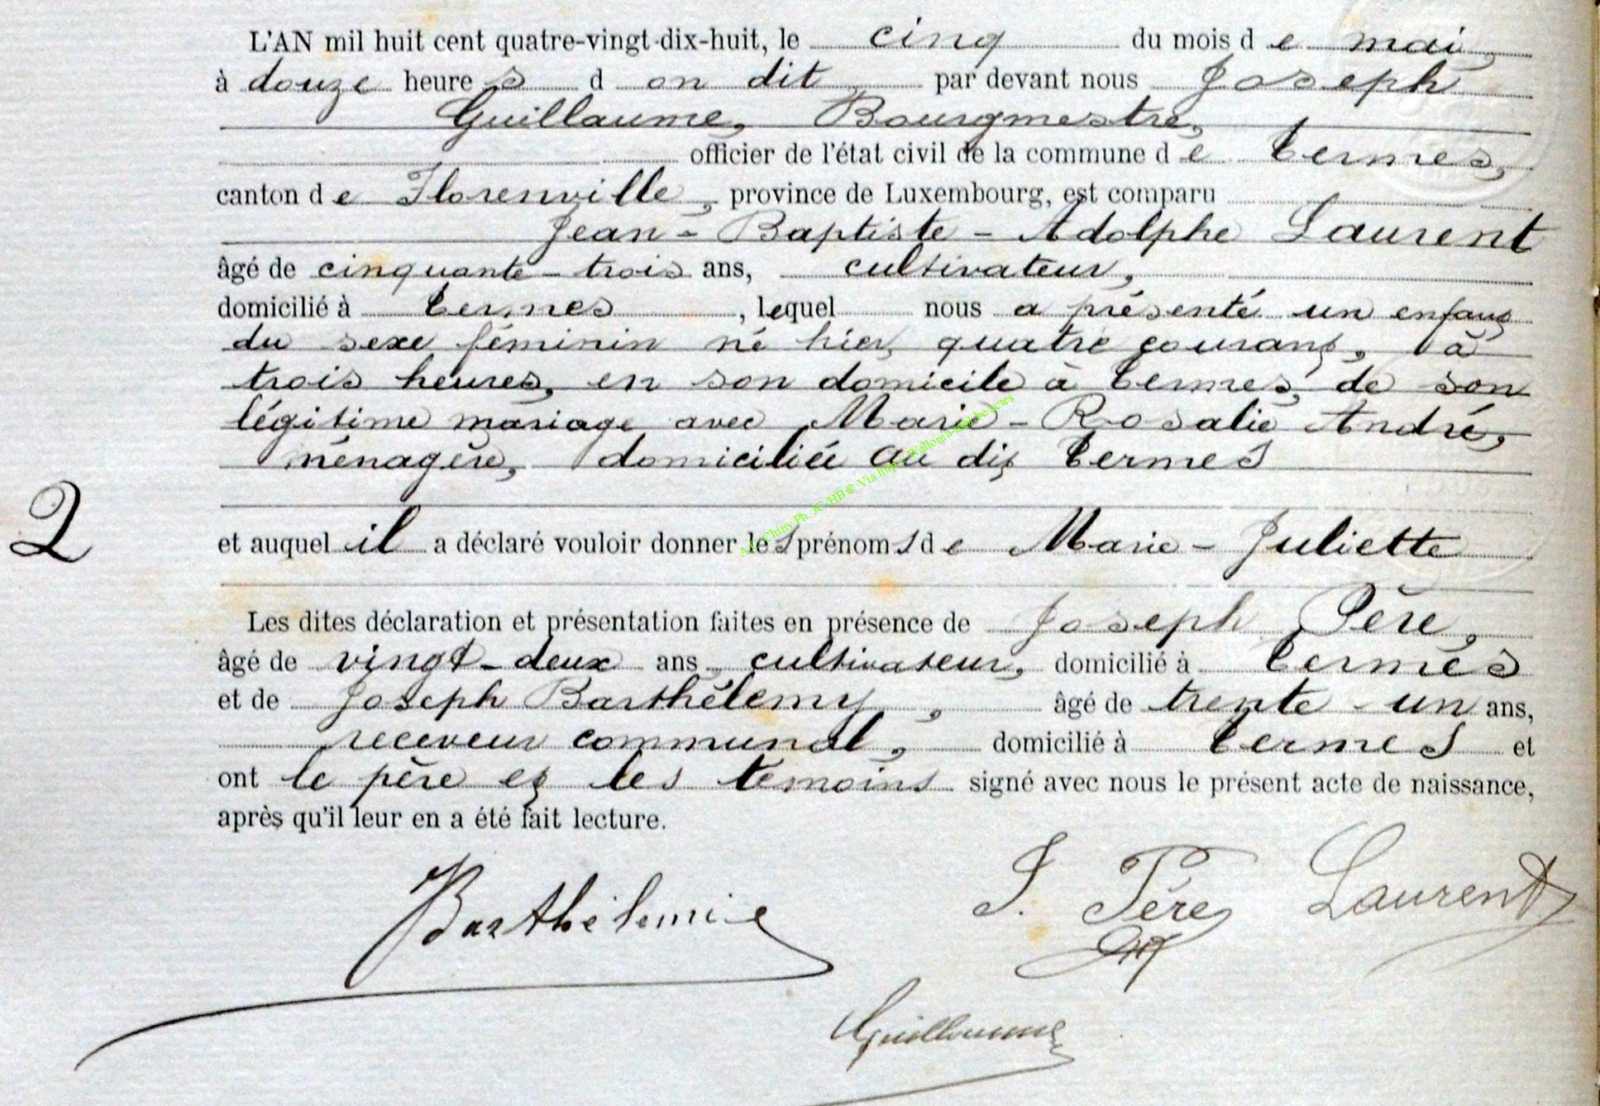 L'AN mil huit cent quatre-vingt-dix-huit, le cinq du mois d e mai,
à douze heure s d on dit par devant nous Joseph
Guillaume, Bourgmestre,
officier de l'état civil de la commune d e Termes,
canton d e Florenville, province de Luxembourg, est comparu
Jean-Baptiste-Adolphe Laurent
âgé de cinquante-trois ans, cultivateur,
domicilié à Termes, lequel nous a présenté un enfant
du sexe féminin né hier, quatre courant, à
trois heures, en son domicile à Termes, de son
légitime mariage avec Marie-Rosalie André,
ménagère, domiciliée au dit Termes
2
et auquel il a déclaré vouloir donner le s prénom s d e Marie-Juliette
Les dites déclaration et présentation faites en présence de Joseph Père,
âgé de vingt-deux ans, cultivateur, domicilié à Termes
et de Joseph Barthélemy, âgé de trente-un ans,
receveur communal, domicilié à Termes et
ont le père et les témoins signé avec nous le présent acte de naissance,
après qu'il leur en a été fait lecture.
Barthélemi J. Père Laurent
Guillaume